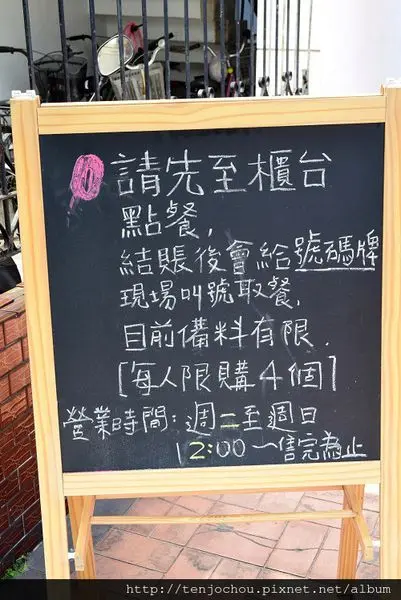 請先至櫃台
點餐,
結賬後會給號碼牌
現場叫號取餐,
目前備料有限.
[每人限購4個]
營業時間:週二至週日
12:00~售完為止
http://tenjochou.pixnet.net/album